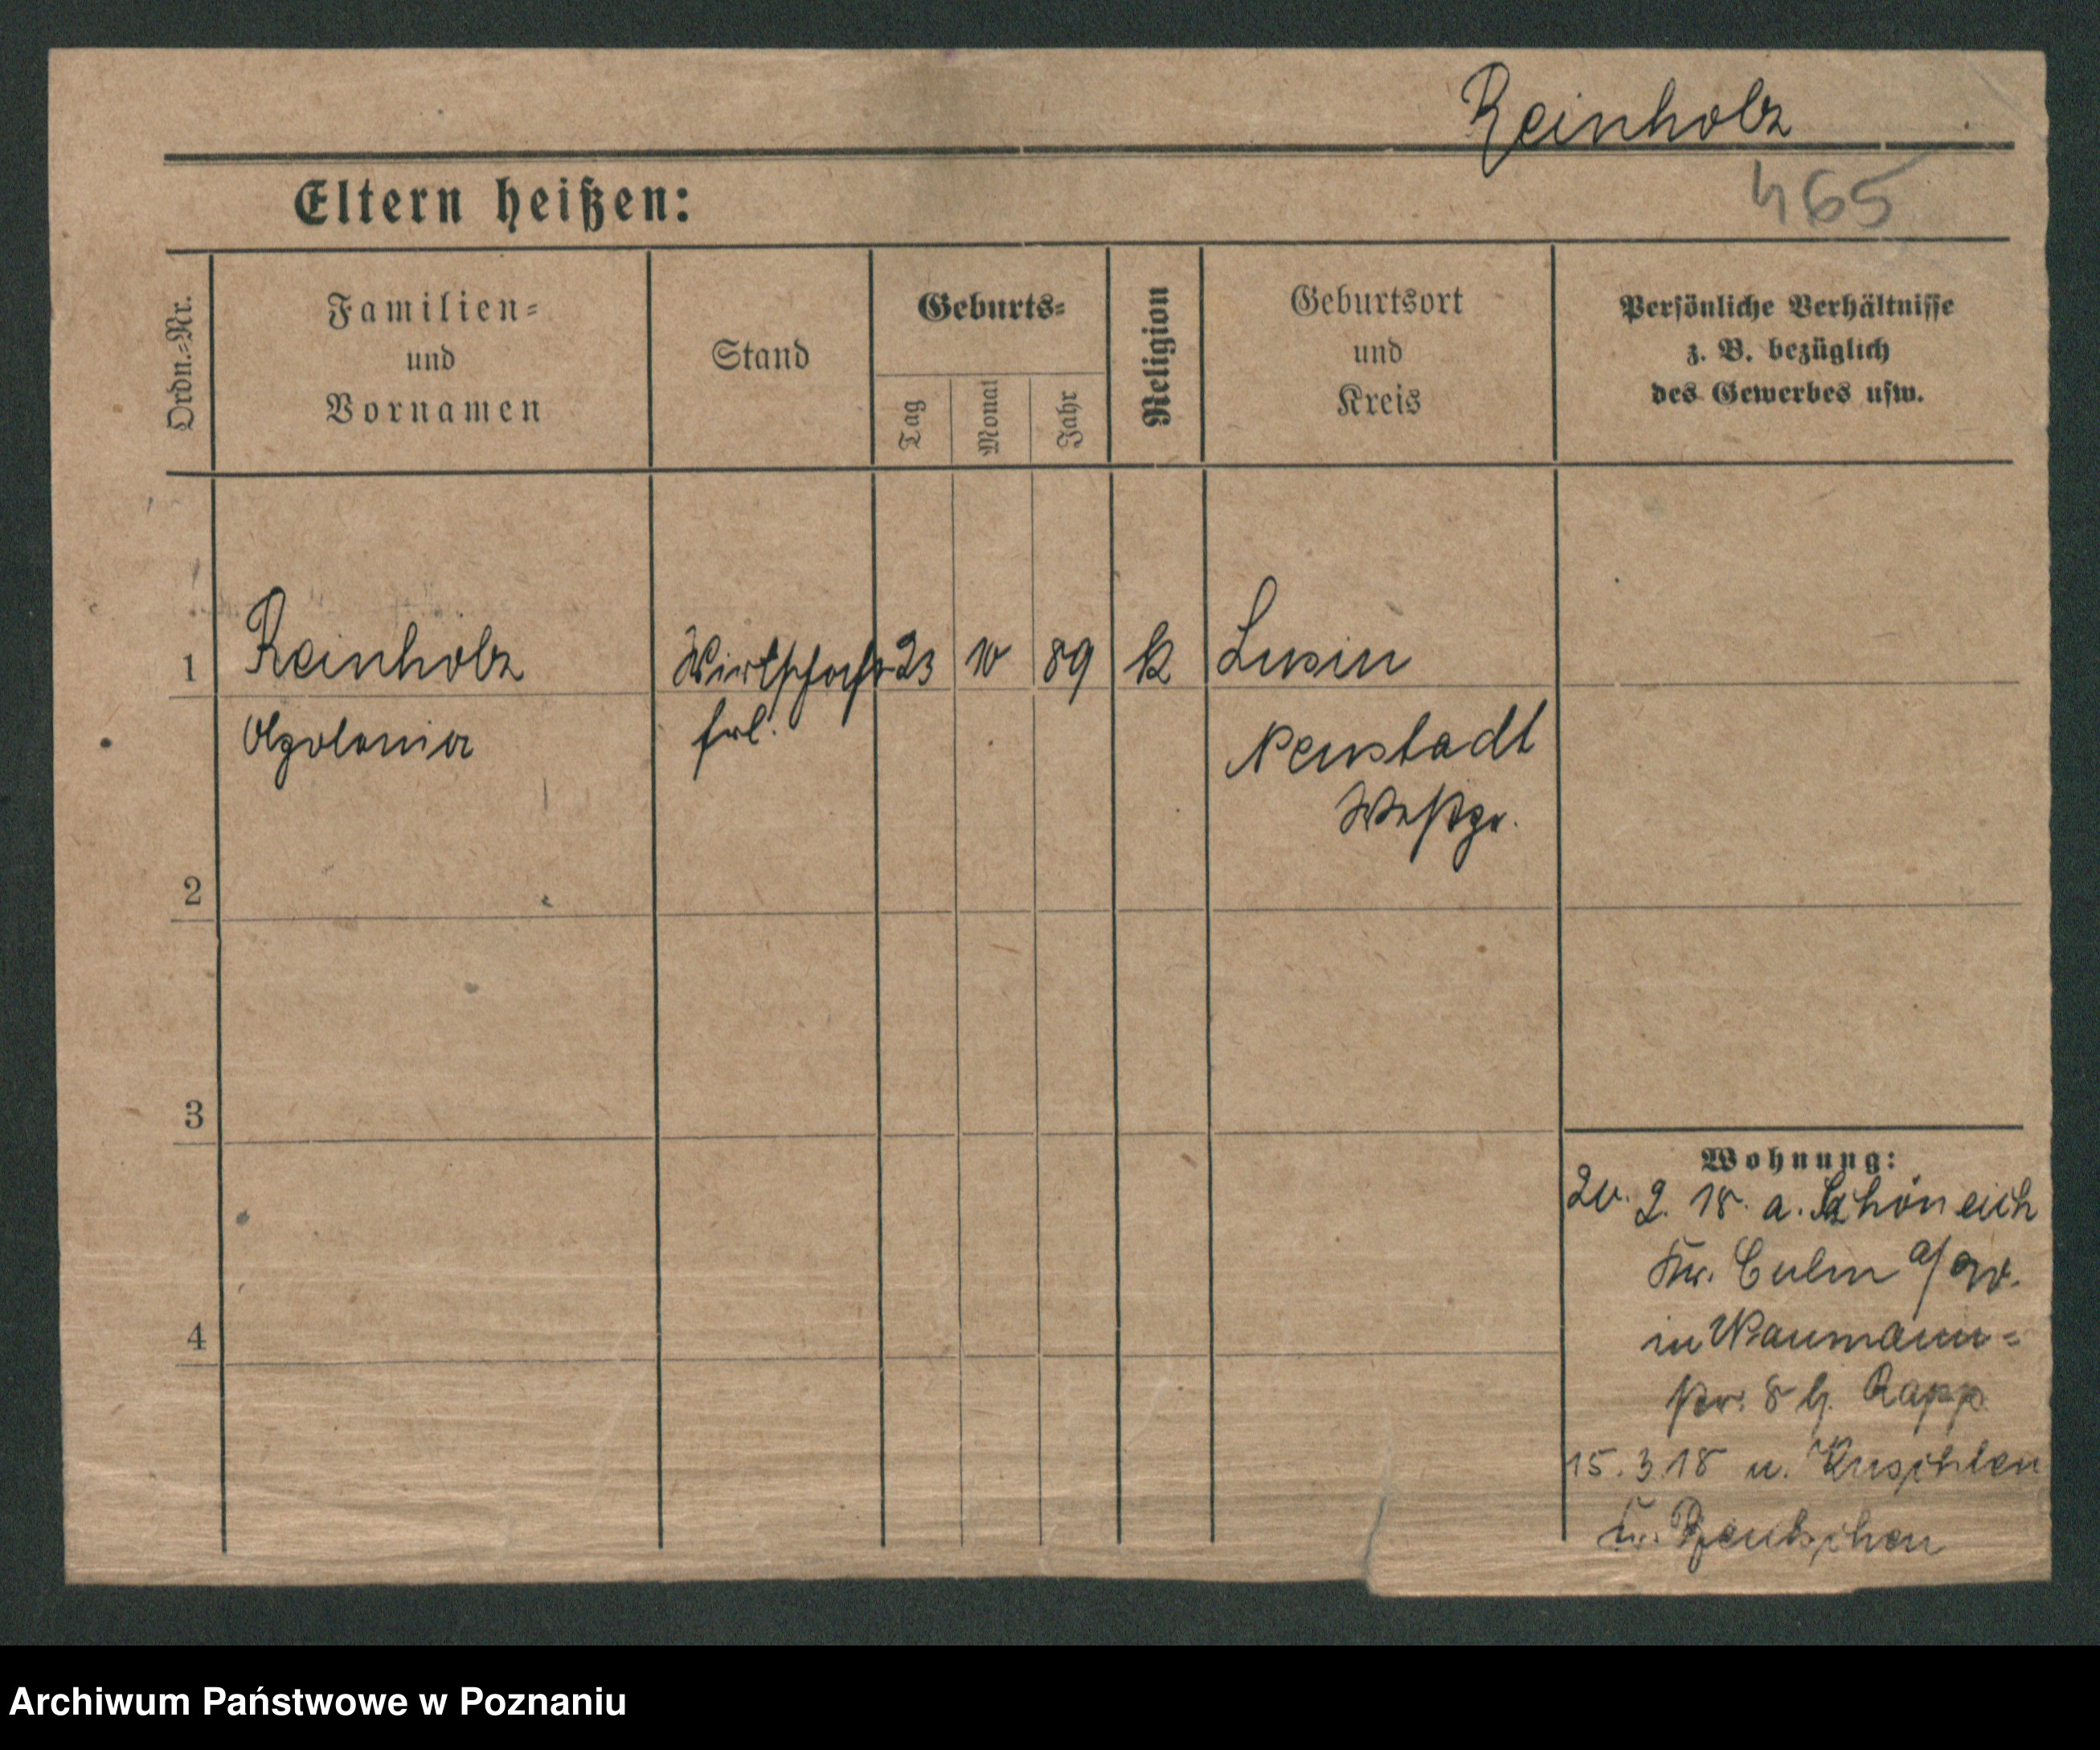 Reinholz
465
Eltern heißen:
Ordn.=Nr.
Familien=
und
Vornamen
Stand
Geburts=
Tag
Monat
Jahr
Religion
Geburtsort
und
Kreis
Persönliche Verhältnisse
z. B. bezüglich
des Gewerbes usw.
1 Reinholz Wirtschafts 23 10 89 k Lusin
Apolonia frl. Neustadt
Westpr.
2
3
4
Wohnung:
20. 2. 18. a. Schöneich
Kr. Culm a/W.
in Naumann=
str. 8 b. Rapp
15. 3 18 n. Kuschlen
Kr. Bentschen
Archiwum Państwowe w Poznaniu